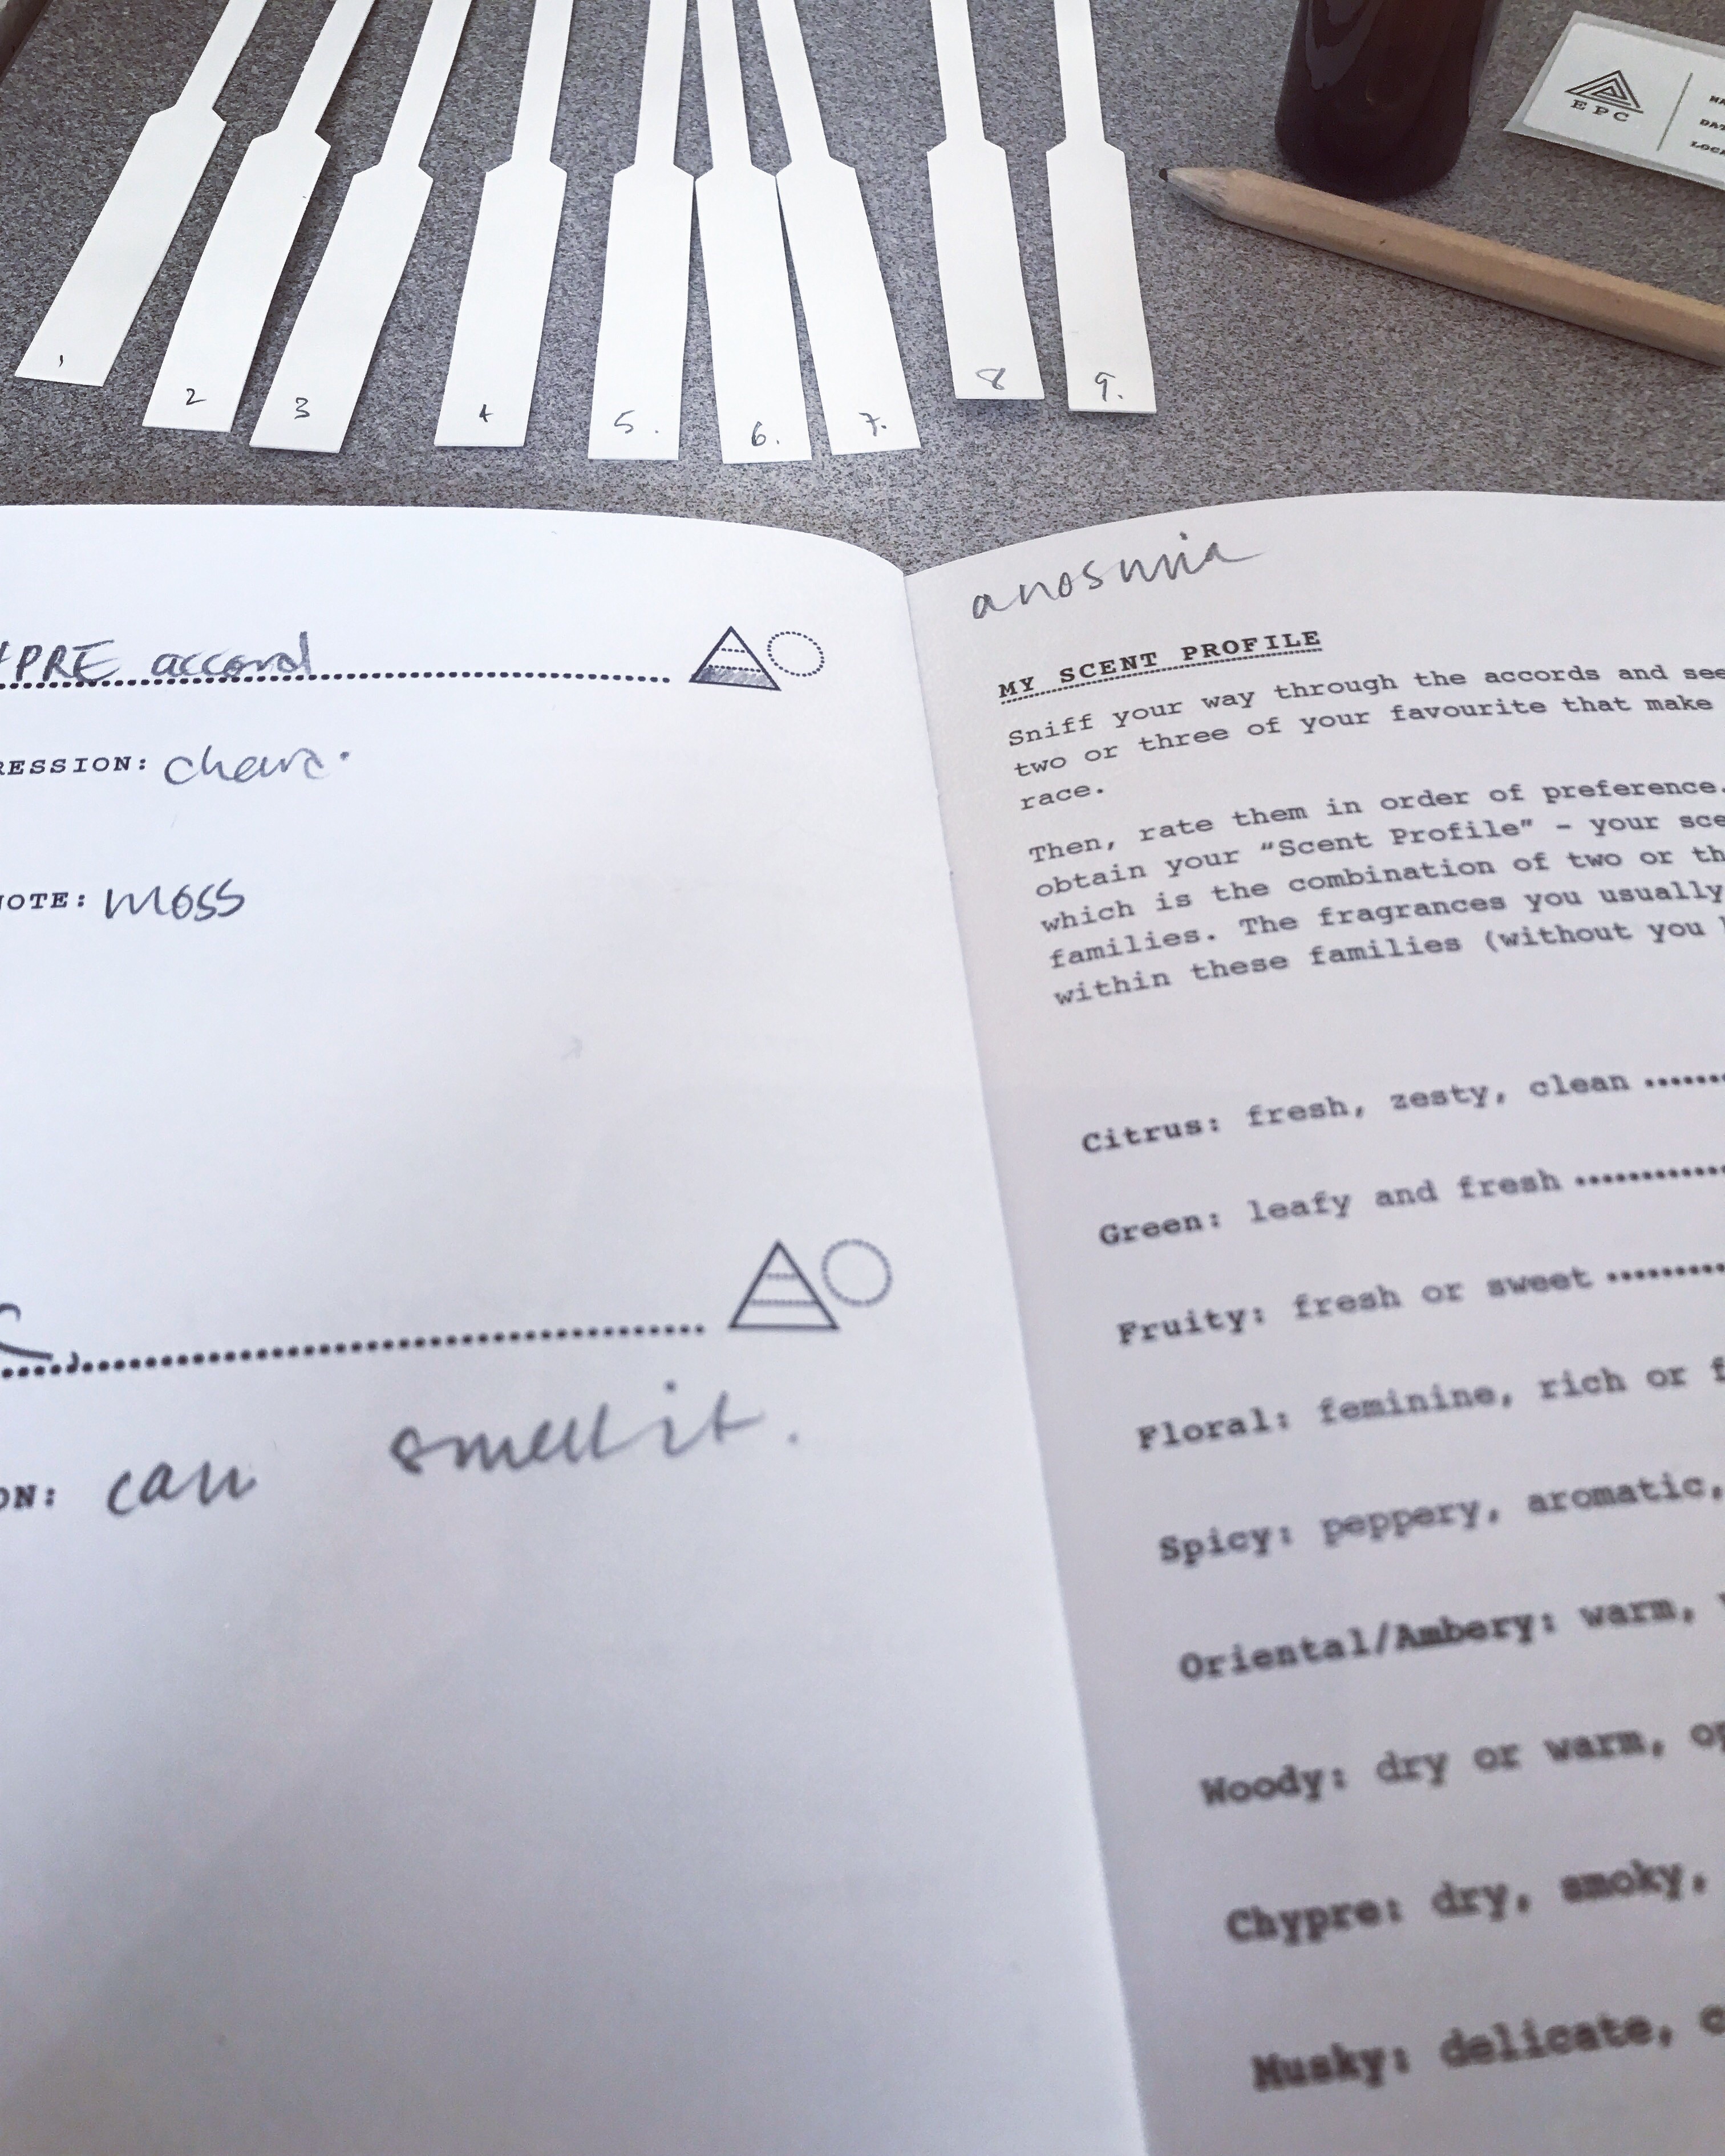 1
2
3
4
5.
6.
7.
8
9.
EPC
PRE accord
RESSION:
NOTE: moss
ON: can smell it.
anosmia
MY SCENT PROFILE
Sniff your way through the accords and see
two or three of your favourite that make
race.
Then, rate them in order of preference.
obtain your “Scent Profile” – your sce
which is the combination of two or th
families. The fragrances you usually
within these families (without you
Citrus: fresh, zesty, clean
Green: leafy and fresh
Fruity: fresh or sweet
Floral: feminine, rich or f
Spicy: peppery, aromatic,
Oriental/Ambery: warm,
Woody: dry or warm, op
Chypre: dry, smoky,
Musky: delicate, c